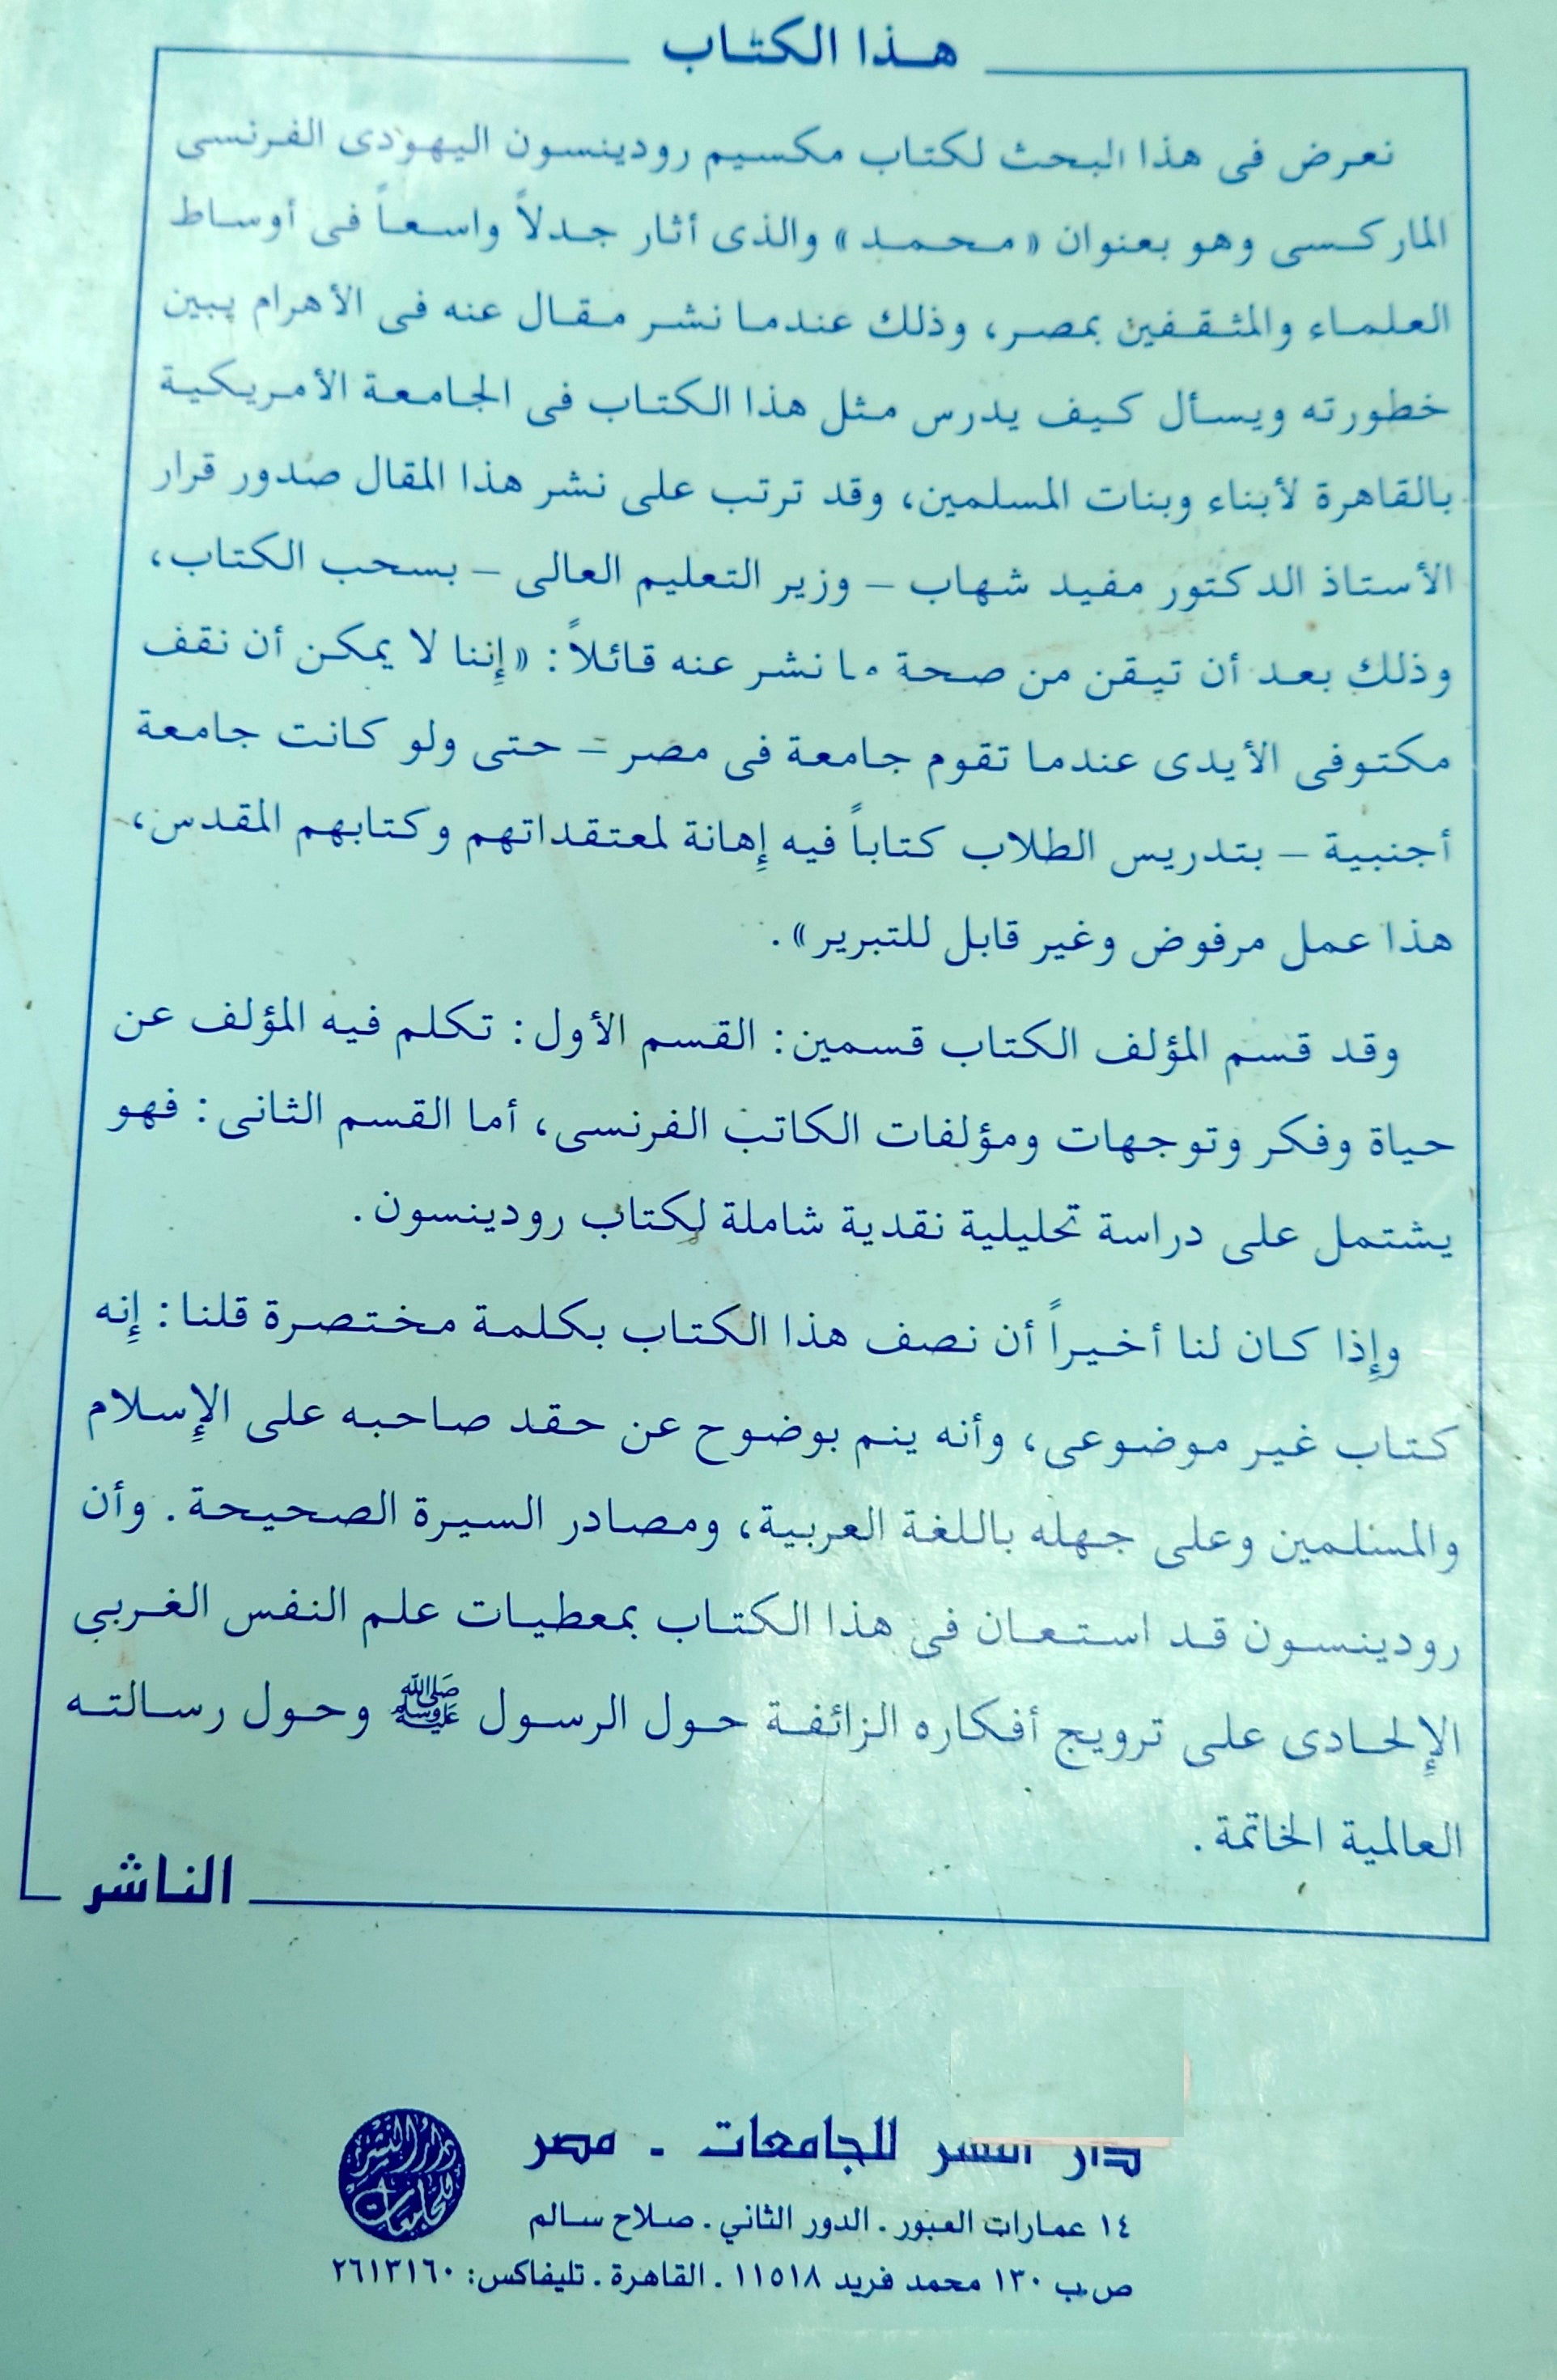 هذا الكتاب
نعرض فى هذا البحث لكتاب مكسيم رودينسون اليهودى الفرنسى
الماركسى وهو بعنوان «محمد» والذى أثار جدلاً واسعاً فى أوساط
العلماء والمثقفين بمصر، وذلك عندما نشر مقال عنه فى الأهرام يبين
خطورته ويسأل كيف يدرس مثل هذا الكتاب فى الجامعة الأمريكية
بالقاهرة لأبناء وبنات المسلمين، وقد ترتب على نشر هذا المقال صدور قرار
الأستاذ الدكتور مفيد شهاب – وزير التعليم العالى – بسحب الكتاب،
وذلك بعد أن تيقن من صحة ما نشر عنه قائلاً: «إننا لا يمكن أن نقف
مكتوفى الأيدى عندما تقوم جامعة فى مصر – حتى ولو كانت جامعة
أجنبية – بتدريس الطلاب كتاباً فيه إهانة لمعتقداتهم وكتابهم المقدس،
هذا عمل مرفوض وغير قابل للتبرير».
وقد قسم المؤلف الكتاب قسمين: القسم الأول: تكلم فيه المؤلف عن
حياة وفكر وتوجهات ومؤلفات الكاتب الفرنسى، أما القسم الثانى: فهو
يشتمل على دراسة تحليلية نقدية شاملة لكتاب رودينسون.
وإذا كان لنا أخيراً أن نصف هذا الكتاب بكلمة مختصرة قلنا: إنه
كتاب غير موضوعى، وأنه ينم بوضوح عن حقد صاحبه على الإسلام
والمسلمين وعلى جهله باللغة العربية، ومصادر السيرة الصحيحة. وأن
رودينسون قد استعان فى هذا الكتاب بمعطيات علم النفس الغربى
الإلحادى على ترويج أفكاره الزائفة حول الرسول ﷺ وحول رسالته
العالمية الخاتمة.
الناشر
دار النشر للجامعات - مصر
دار النشر للجامعات
١٤ عمارات العبور . الدور الثاني . صلاح سالم
ص.ب ١٣٠ محمد فريد ١١٥١٨ . القاهرة . تليفاكس: ٢٦١٣١٦٠